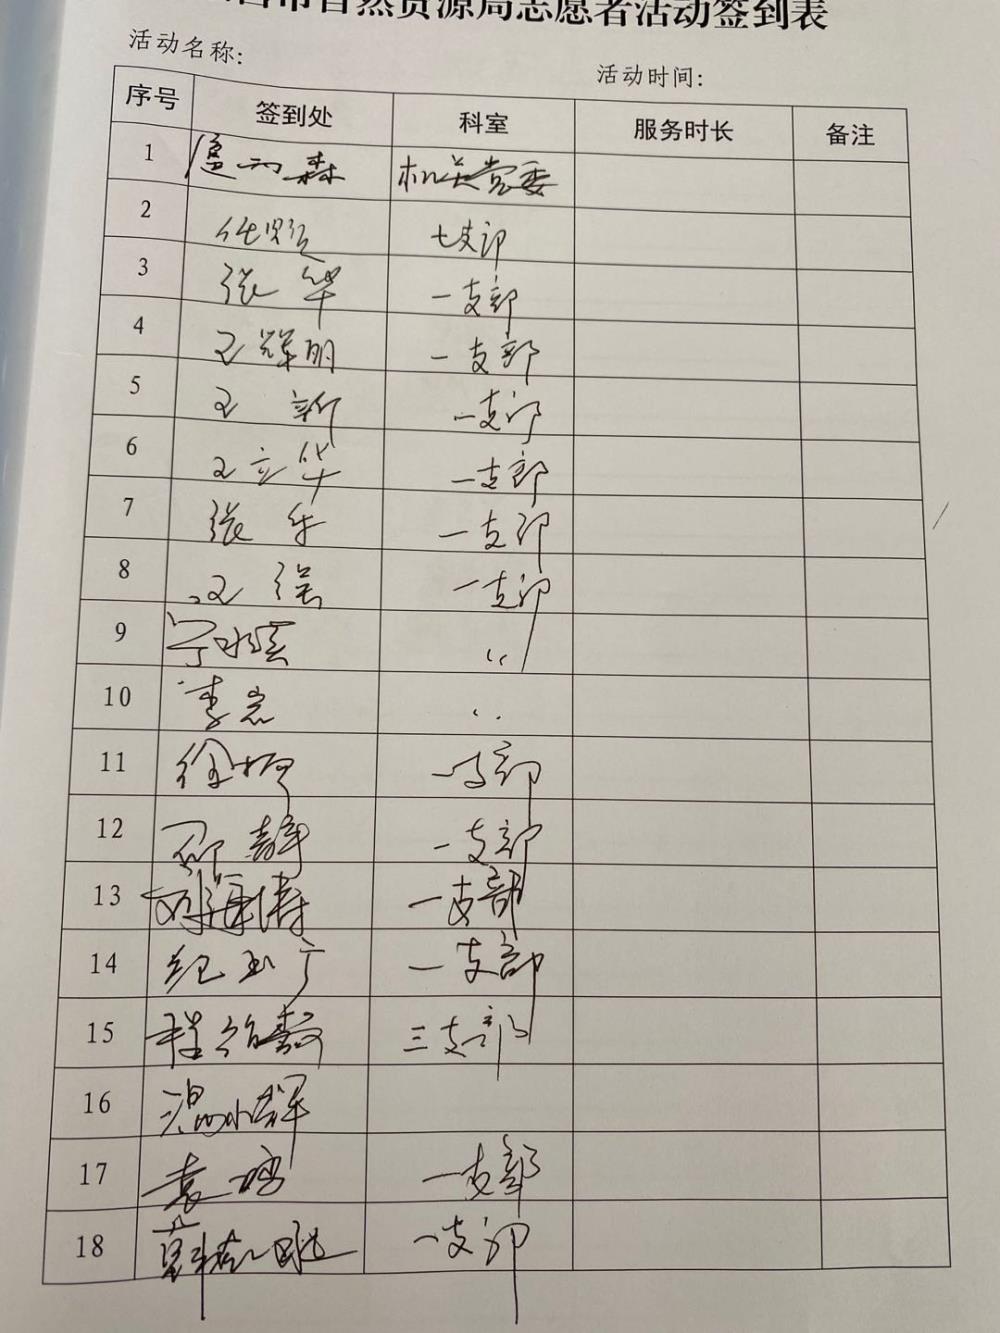 市自然资源局志愿者活动签到表
活动名称:
活动时间:
序号 签到处 科室 服务时长 备注
1 森 机关党委
2 任 七支部
3 张华 一支部
4 王辉明 一支部
5 王新 一支部
6 王立华 一支部
7 张 一支部
8 王强 一支部
9 宁 〃
10 李宏 〃
11 徐 一支部
12 邵静 一支部
13 刘海涛 一支部
14 纪玉广 一支部
15 程 三支部
16 温小群
17 袁 一支部
18 一支部